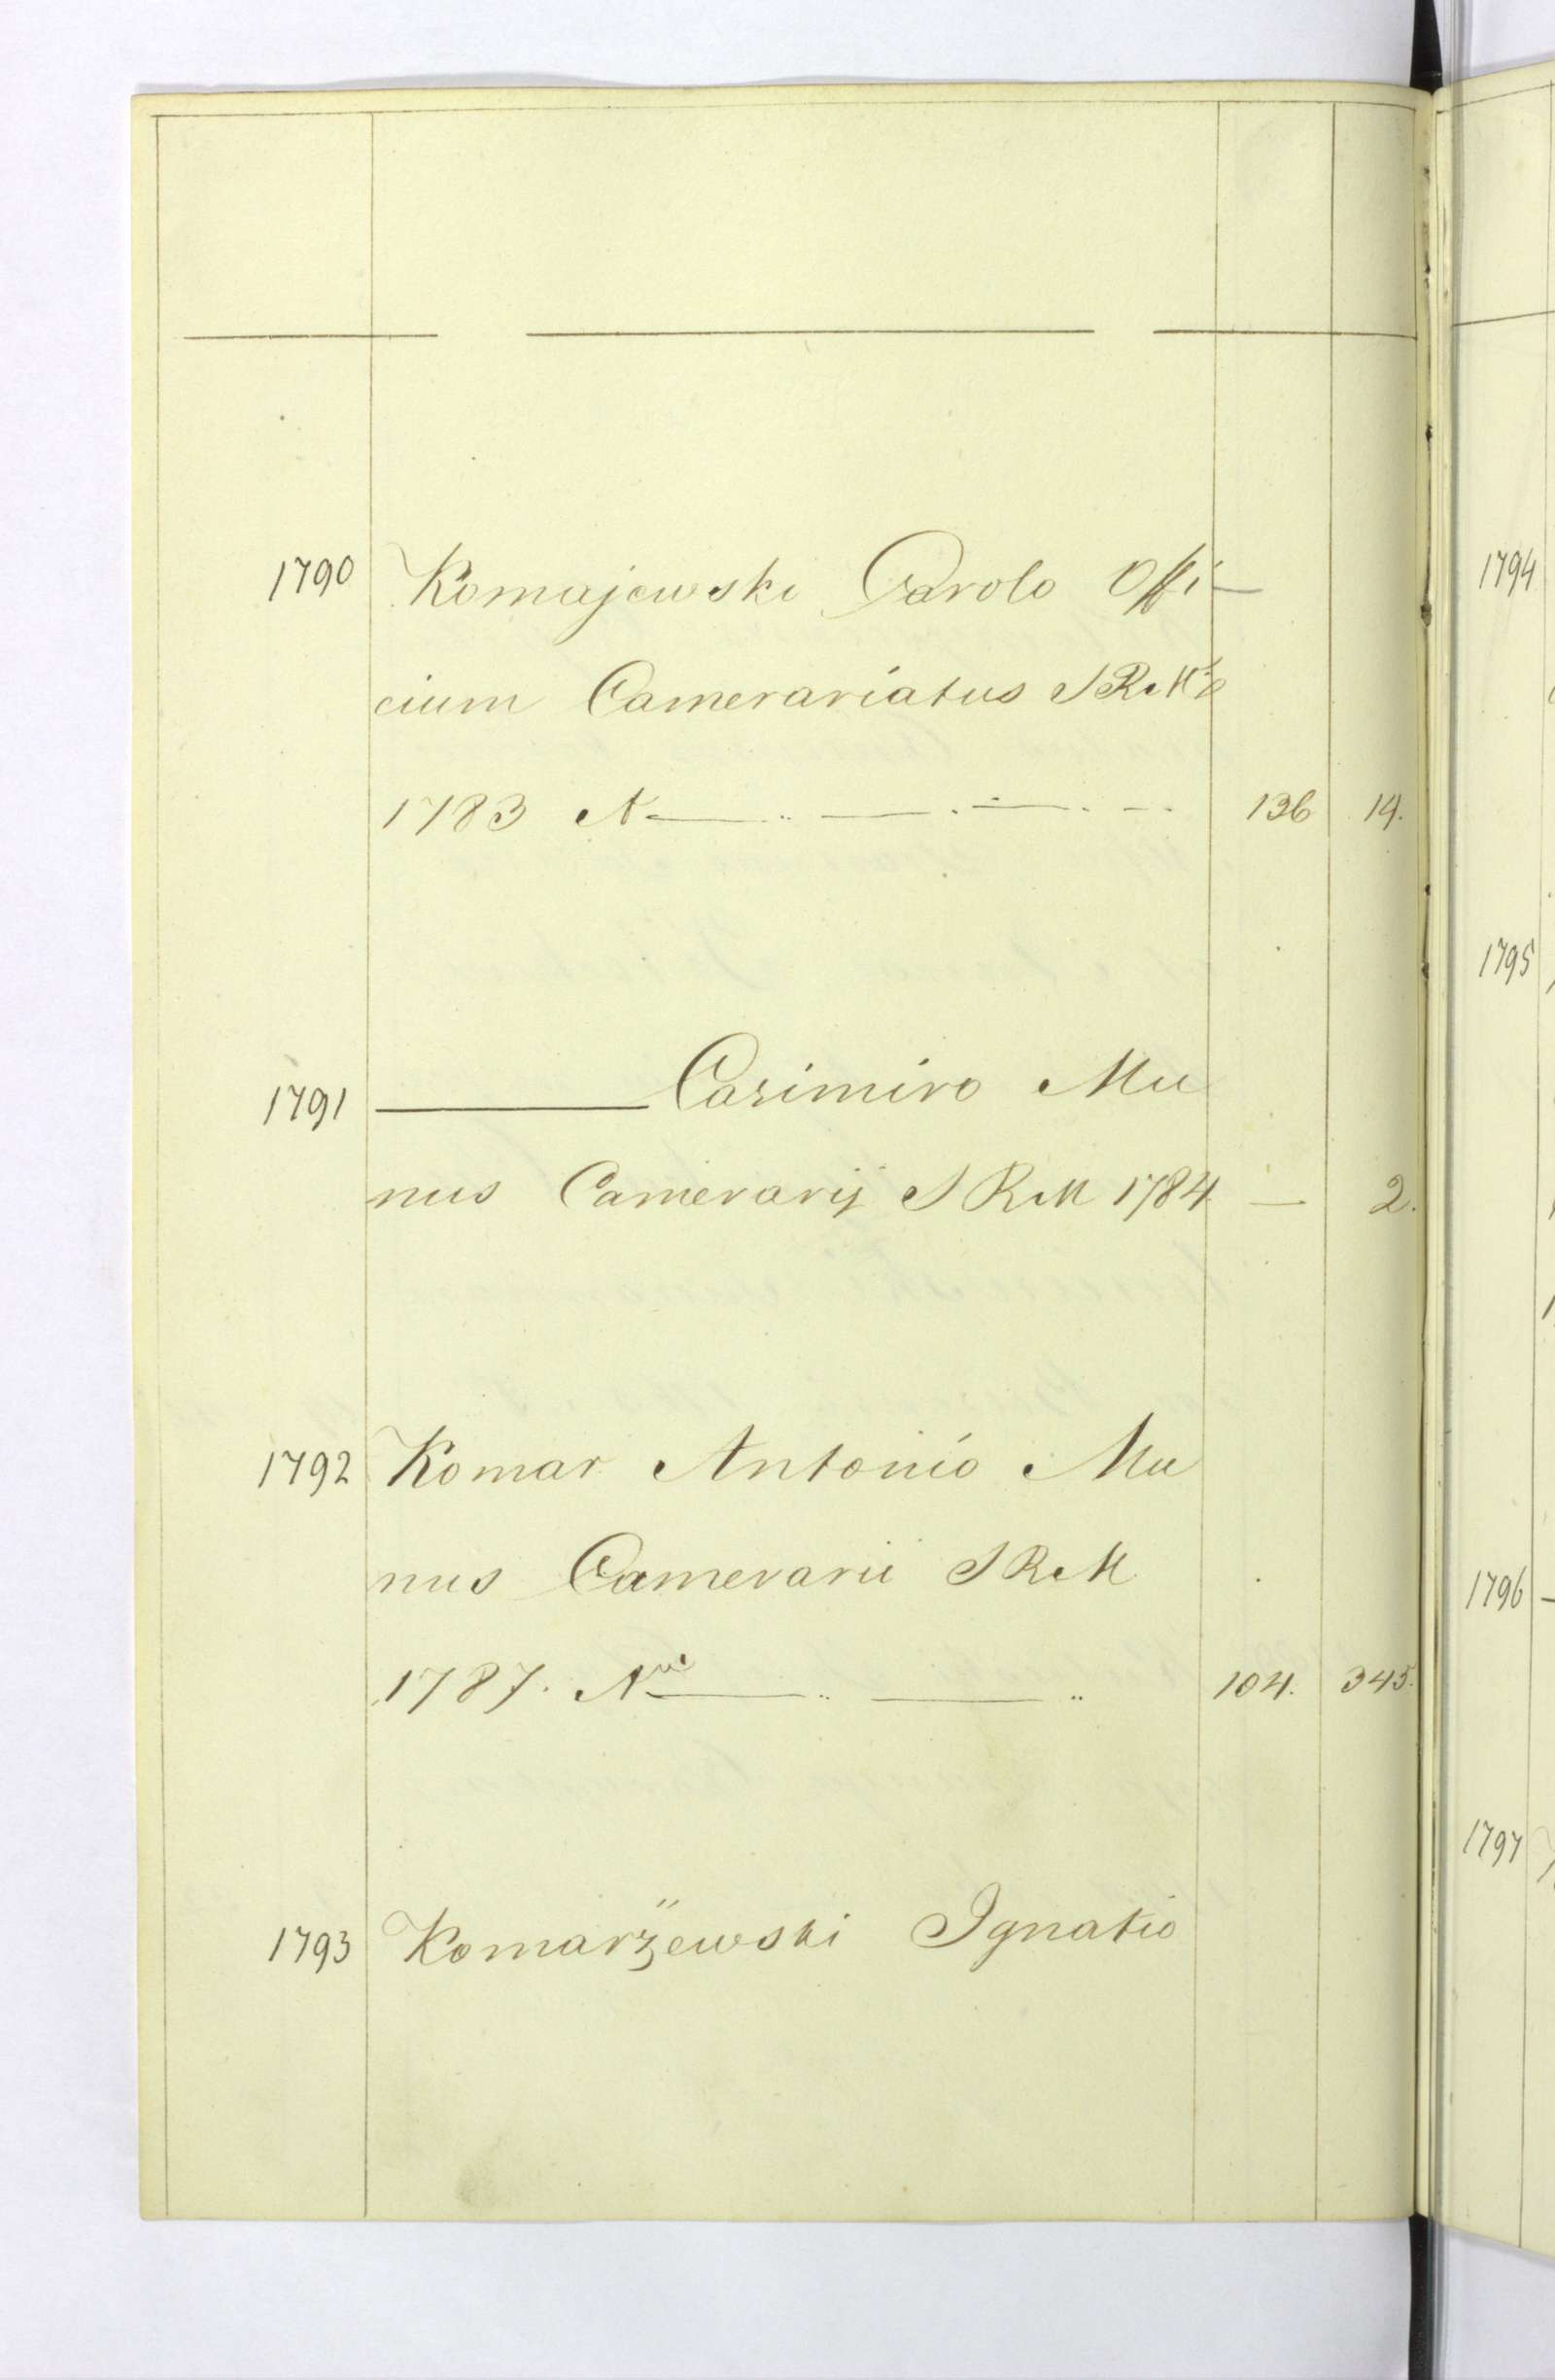 1790 Komajewski Carolo Offi-
cium Camerariatus SRMis
1783 N 136 14.
1791 Casimiro Mu
nus Camerarij SRM 1784 — 2.
1792 Komar Antonio Mu
nus Camerarii SRM
1787. Nro 104. 345.
1793 Komarżewski Ignatio
1794
1795
1796
1797